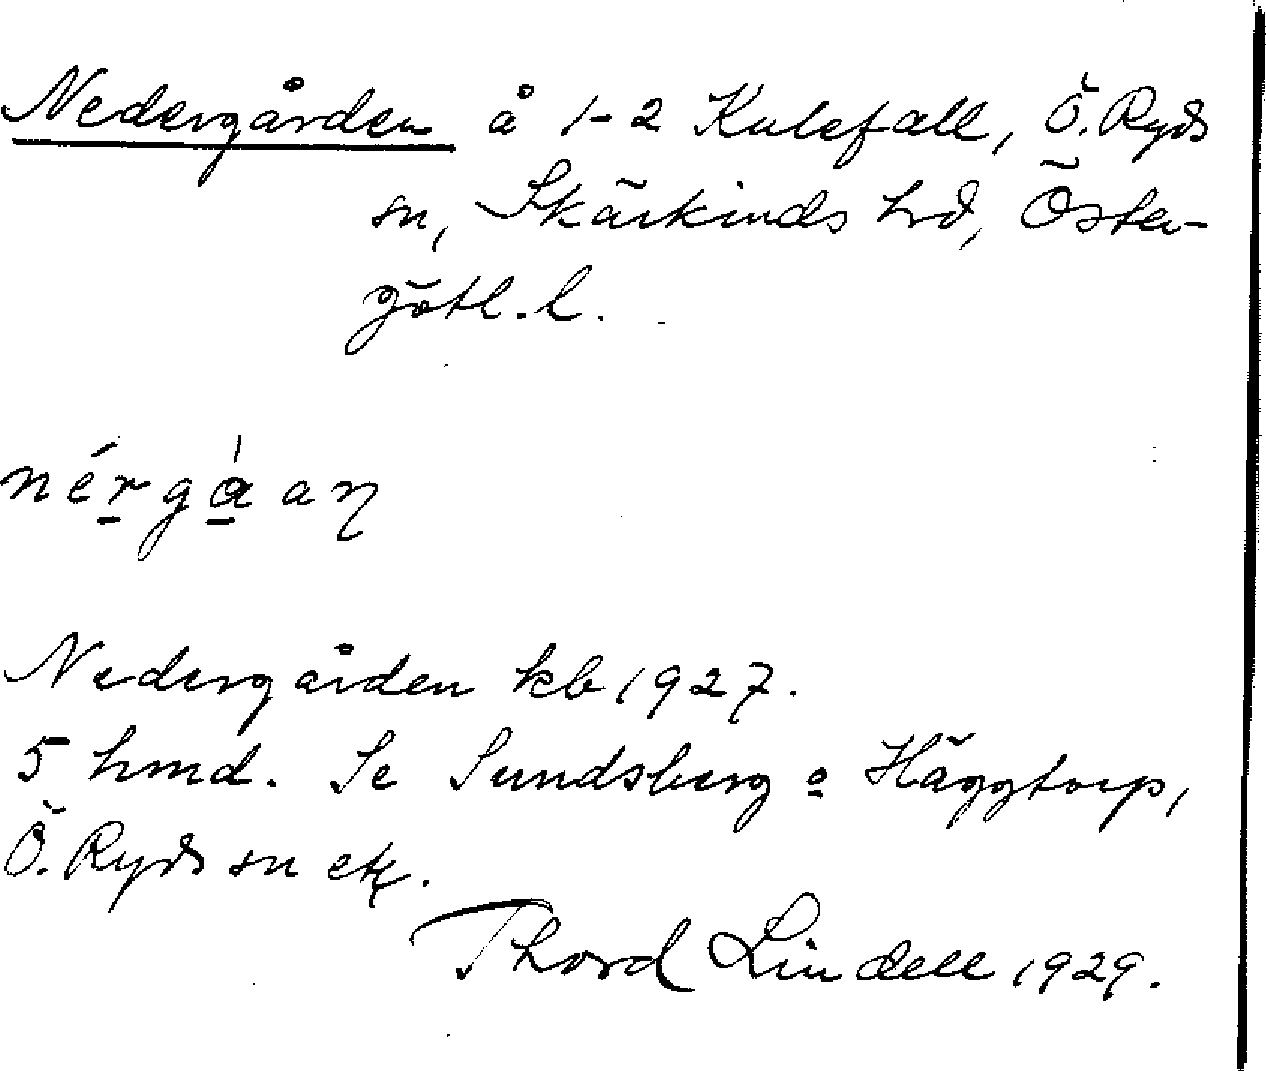 Nedergården å 1-2 Kulefall, Ö. Ryds
sn, Skärkinds hd, Öster-
götl. l.
nérgá an
Nedergården kb 1927.
5 hmd. Se Sundsberg o Häggtorp,
Ö. Ryds sn etc.
Thord Lindell 1929.